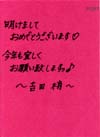 明けまして
おめでとうございます♡
今年も宜しく
お願い致しますね♪
～吉田